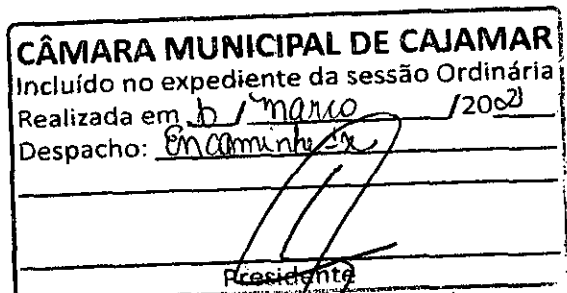 CÂMARA MUNICIPAL DE CAJAMAR
Incluído no expediente da sessão Ordinária
Realizada em / março /20
Despacho: Encaminhe-se
Presidente